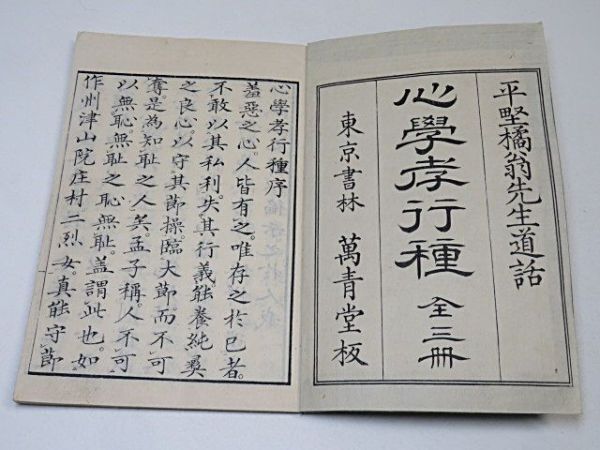 平野橘翁先生道話
心學孝行種 全三册
東京書林 萬青堂板
心學孝行種序
羞惡之心。人皆有之。唯存之於已者。
不敢以其私利。失其行義。能養純粹
之良心。以守其節操。臨大節。而不可
奪。是為知耻之人矣。孟子稱。人不可
以無恥。無耻之恥。無耻。蓋謂此也。如
作州津山院庄村二烈女。真能守節